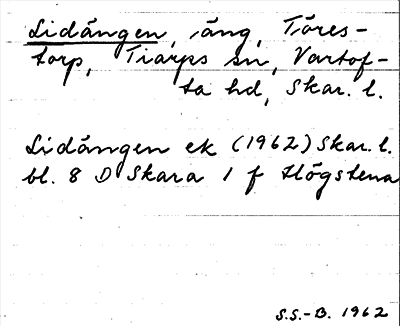 Lidängen, äng, Töres-
torp, Tiarps sn, Vartof-
ta hd, Skar. l.
Lidängen ek (1962) Skar. l.
bl. 8 D Skara 1 f Högstena
S.S.-B. 1962